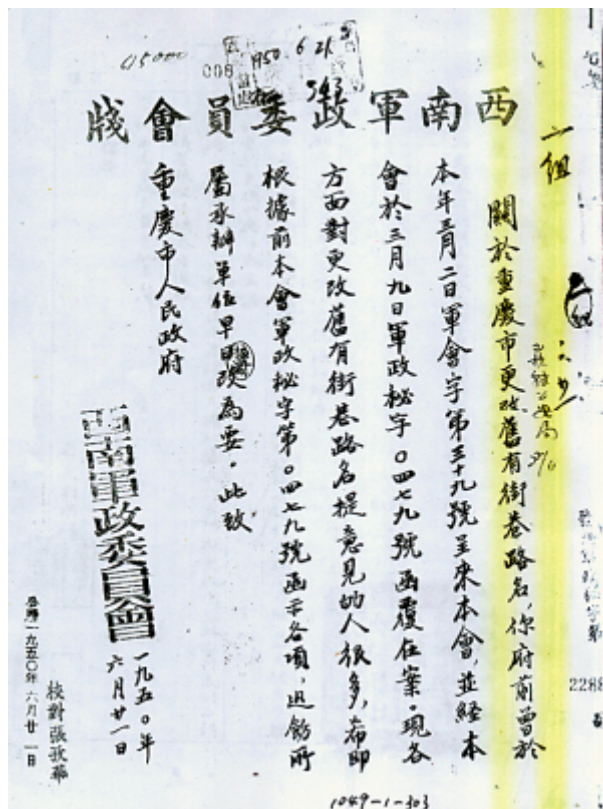 西南軍政委員會牋
關於重慶市更改舊有街巷路名，你府前曾於
本年三月二日軍會字第三十九號呈來本會，並經本
會於三月九日軍政秘字〇四七九號函覆在案。現各
方面對更改舊有街巷路名提意見的人很多，希即
根據前本會軍政秘字第〇四七九號函示各項，迅飭所
屬承辦單位早日改為要。此致
重慶市人民政府
西南軍政委員會
一九五〇年
六月廿一日
校對張
一九五〇年六月廿一日
45000
008
1950. 6. 21
二組
2288
1049-1-303